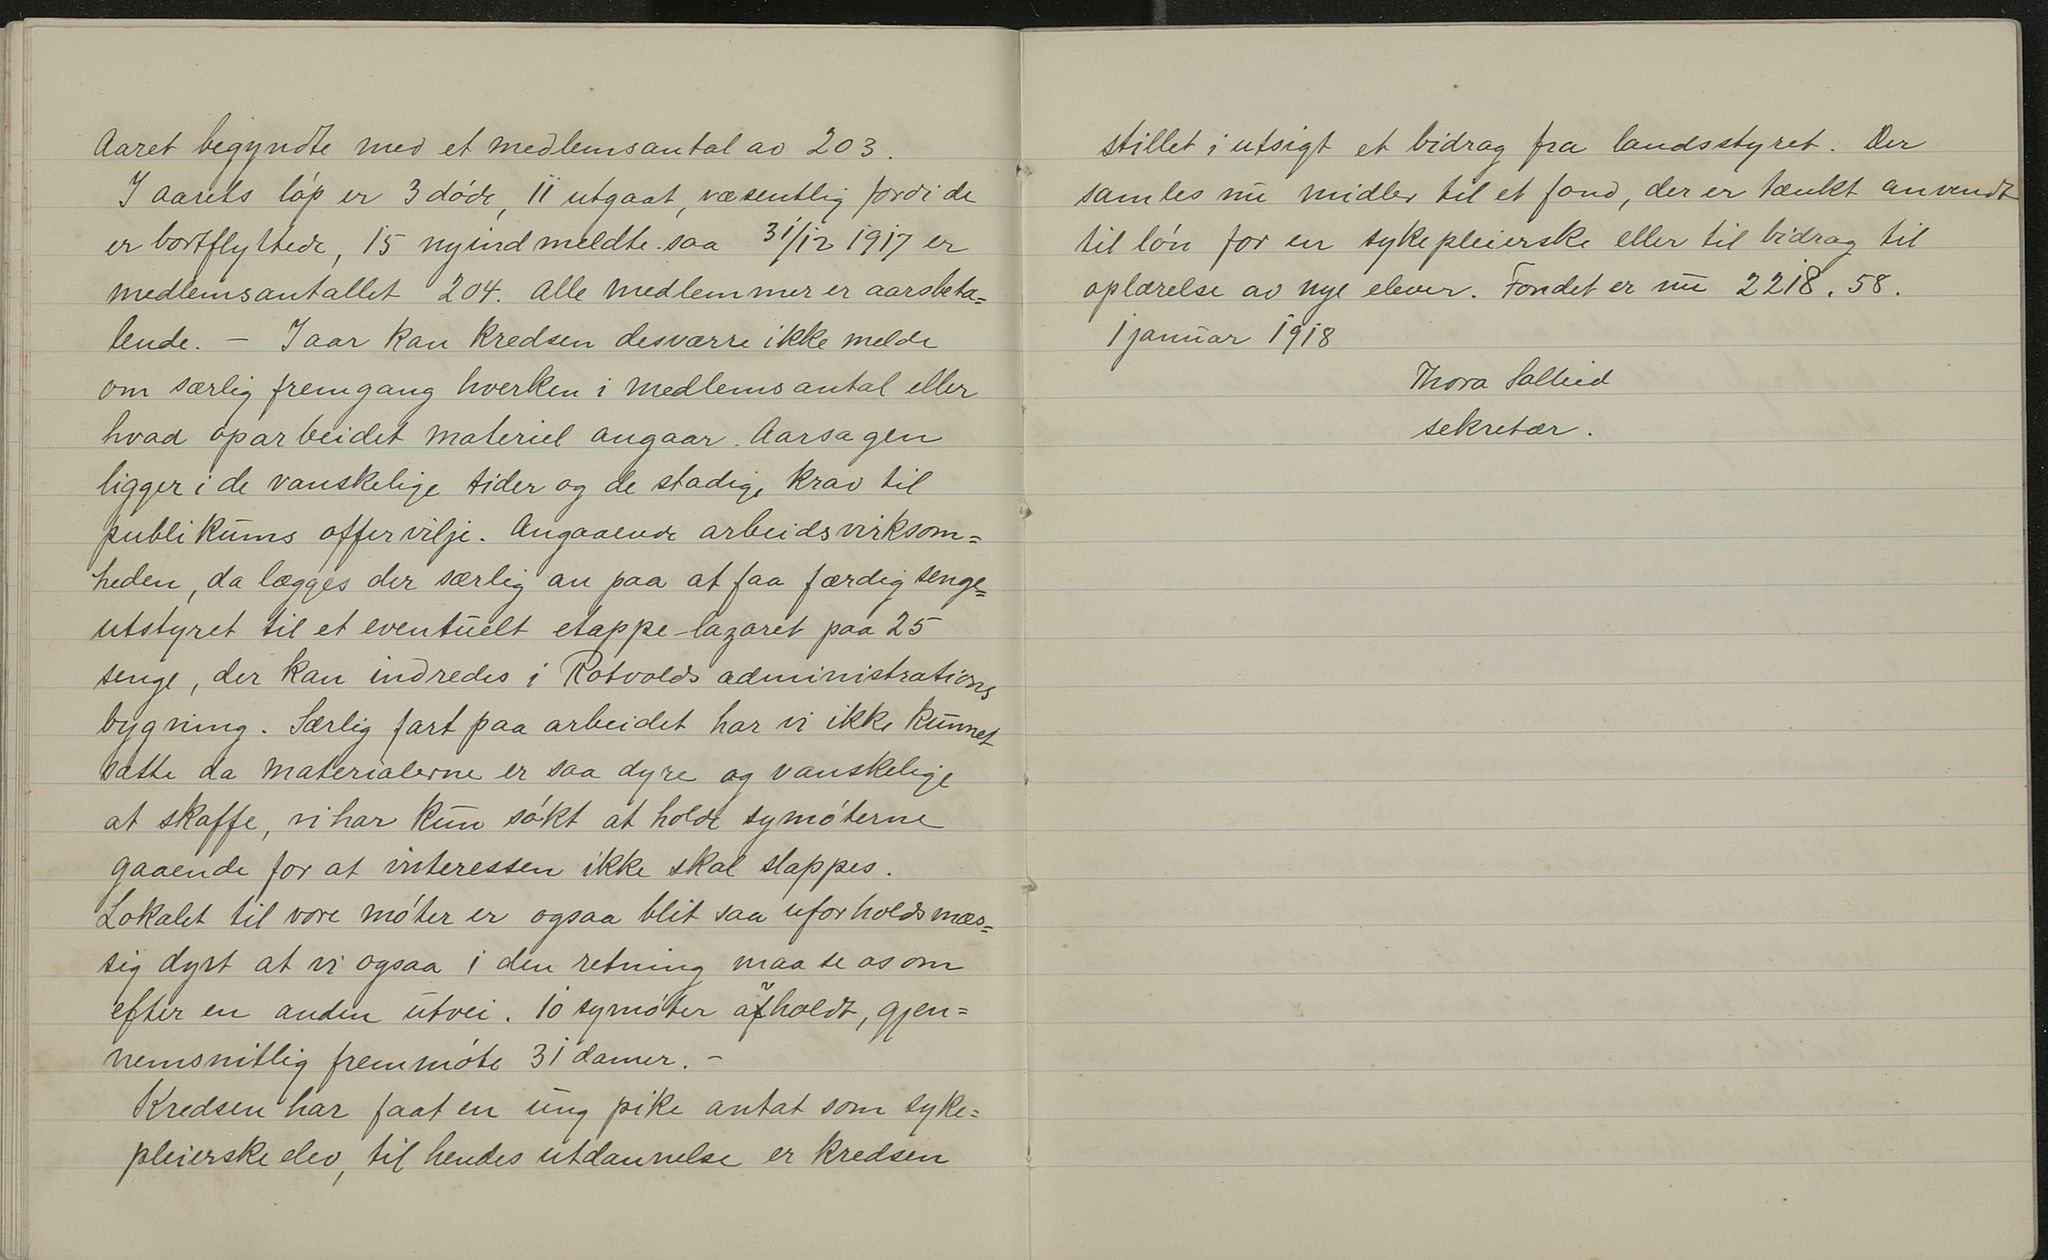 Aaret begyndte med et medlemsantal av 203.
I aarets løp er 3 døde, 11 utgaat, væsentlig fordi de
er bortflyttede, 15 nyindmeldte saa 31/12 1917 er
medlemsantallet 204. Alle medlemmer er aarsbeta=
lende. — I aar kan kredsen desværre ikke melde
om særlig fremgang hverken i medlemsantal eller
hvad oparbeidet materiel angaar. Aarsagen
ligger i de vanskelige tider og de stadige krav til
publikums offervilje. Angaaende arbeidsvirksom=
heden, da lægges der særlig an paa at faa færdig senge=
utstyret til et eventuelt etappe-lazaret paa 25
senge, der kan indredes i Rotvolds administrations
bygning. Særlig fart paa arbeidet har vi ikke kunnet
sætte da materialerne er saa dyre og vanskelige
at skaffe, vi har kun søkt at holde symøterne
gaaende for at interessen ikke skal slappes.
Lokalet til vore møter er ogsaa blit saa uforholdsmæs=
sig dyrt at vi ogsaa i den retning maa se os om
efter en anden utvei. 10 symøter avholdt, gjen=
nemsnitlig fremmøte 31 damer. —
Kredsen har faat en ung pike antat som syke=
pleierskeelev, til hendes utdannelse er kredsen
stillet i utsigt et bidrag fra landsstyret. Der
samles nu midler til et fond, der er tænkt anvendt
til løn for en sykepleierske eller til bidrag til
oplærelse av nye elever. Fondet er nu 2218.58.
1 januar 1918
Thora
sekretær.